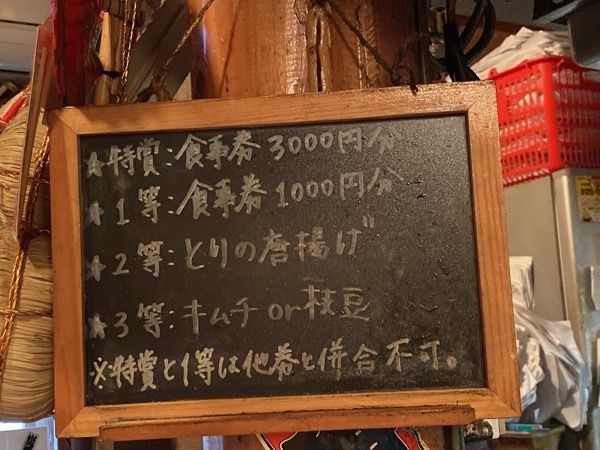 ★特賞:食事券3000円分
★1等:食事券1000円分
★2等:とりの唐揚げ
★3等:キムチor枝豆
※特賞と1等は他券と併合不可。